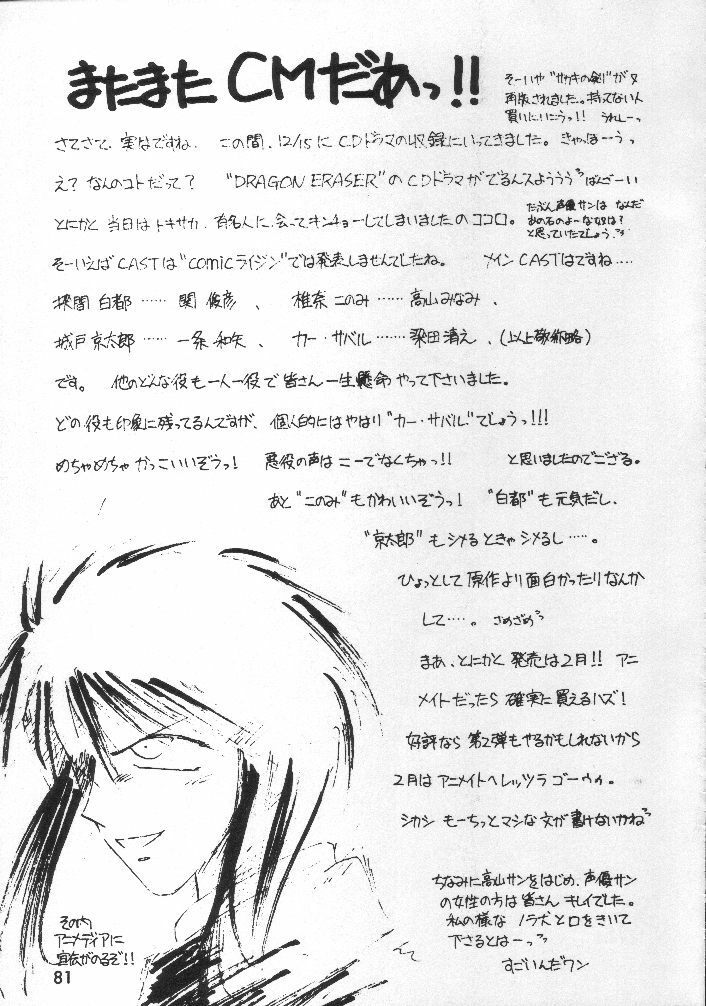 またまた CMだあっ!!
そーいや"サカキの剣"が又
再版されました。持ってない人
買いにいこうっ!! うれしーっ
さてさて、実はですね、この間、12/15にCDドラマの収録にいってきました。きゃっほーうっ
え? なんのコトだって? "DRAGON ERASER"のCDドラマがでるんスようううばんざーい
とにかく当日はトキサカ、有名人に会ってキンチョーしてしまいましたのココロ。
たぶん声優サンは なんだ
あの石のよーな奴は?
と思っていたでしょう、
そーいえばCASTは"comicライジン"では発表しませんでしたね。 メインCASTはですね‥‥
探闇 白都‥‥‥関 俊彦、 椎奈このみ‥‥‥高山みなみ、
城戸京太郎‥‥‥一条和矢、 カー・サバル‥‥‥梁田清之、(以上敬称略)
です。 他のどんな役も一人一役で皆さん一生懸命やって下さいました。
どの役も印象に残ってるんですが、個人的にはやはり"カー・サバル"でしょうっ!!!
めちゃめちゃかっこいいぞうっ! 悪役の声はこーでなくちゃっ!! と思いましたのでござる。
あと"このみ"もかわいいぞうっ! "白都"も元気だし、
"京太郎"もシメるときゃシメるし‥‥。
ひょっとして原作より面白かったりなんか
して‥‥。 さめざめ
まあ、とにかく発売は2月!! アニ
メイトだったら確実に買えるハズ!
好評なら第2弾もやるかもしれないから
2月はアニメイトへレッツラゴーゥゥ。
シカシ もーちっとマシな文が書けないかね
ちなみに高山サンをはじめ、声優サン
の女性の方は皆さんキレイでした。
私の様なノラ犬と口をきいて
下さるとはーっ
すごいんだワン
その内
アニメディアに
宣伝がのるぞ!!
81